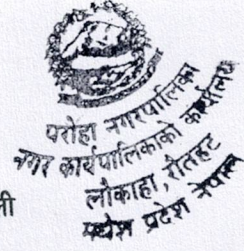 परोहा नगरपालिका
नगर कार्यपालिकाको कार्यालय
लोकाहा, रौतहट
मधेश प्रदेश नेपाल